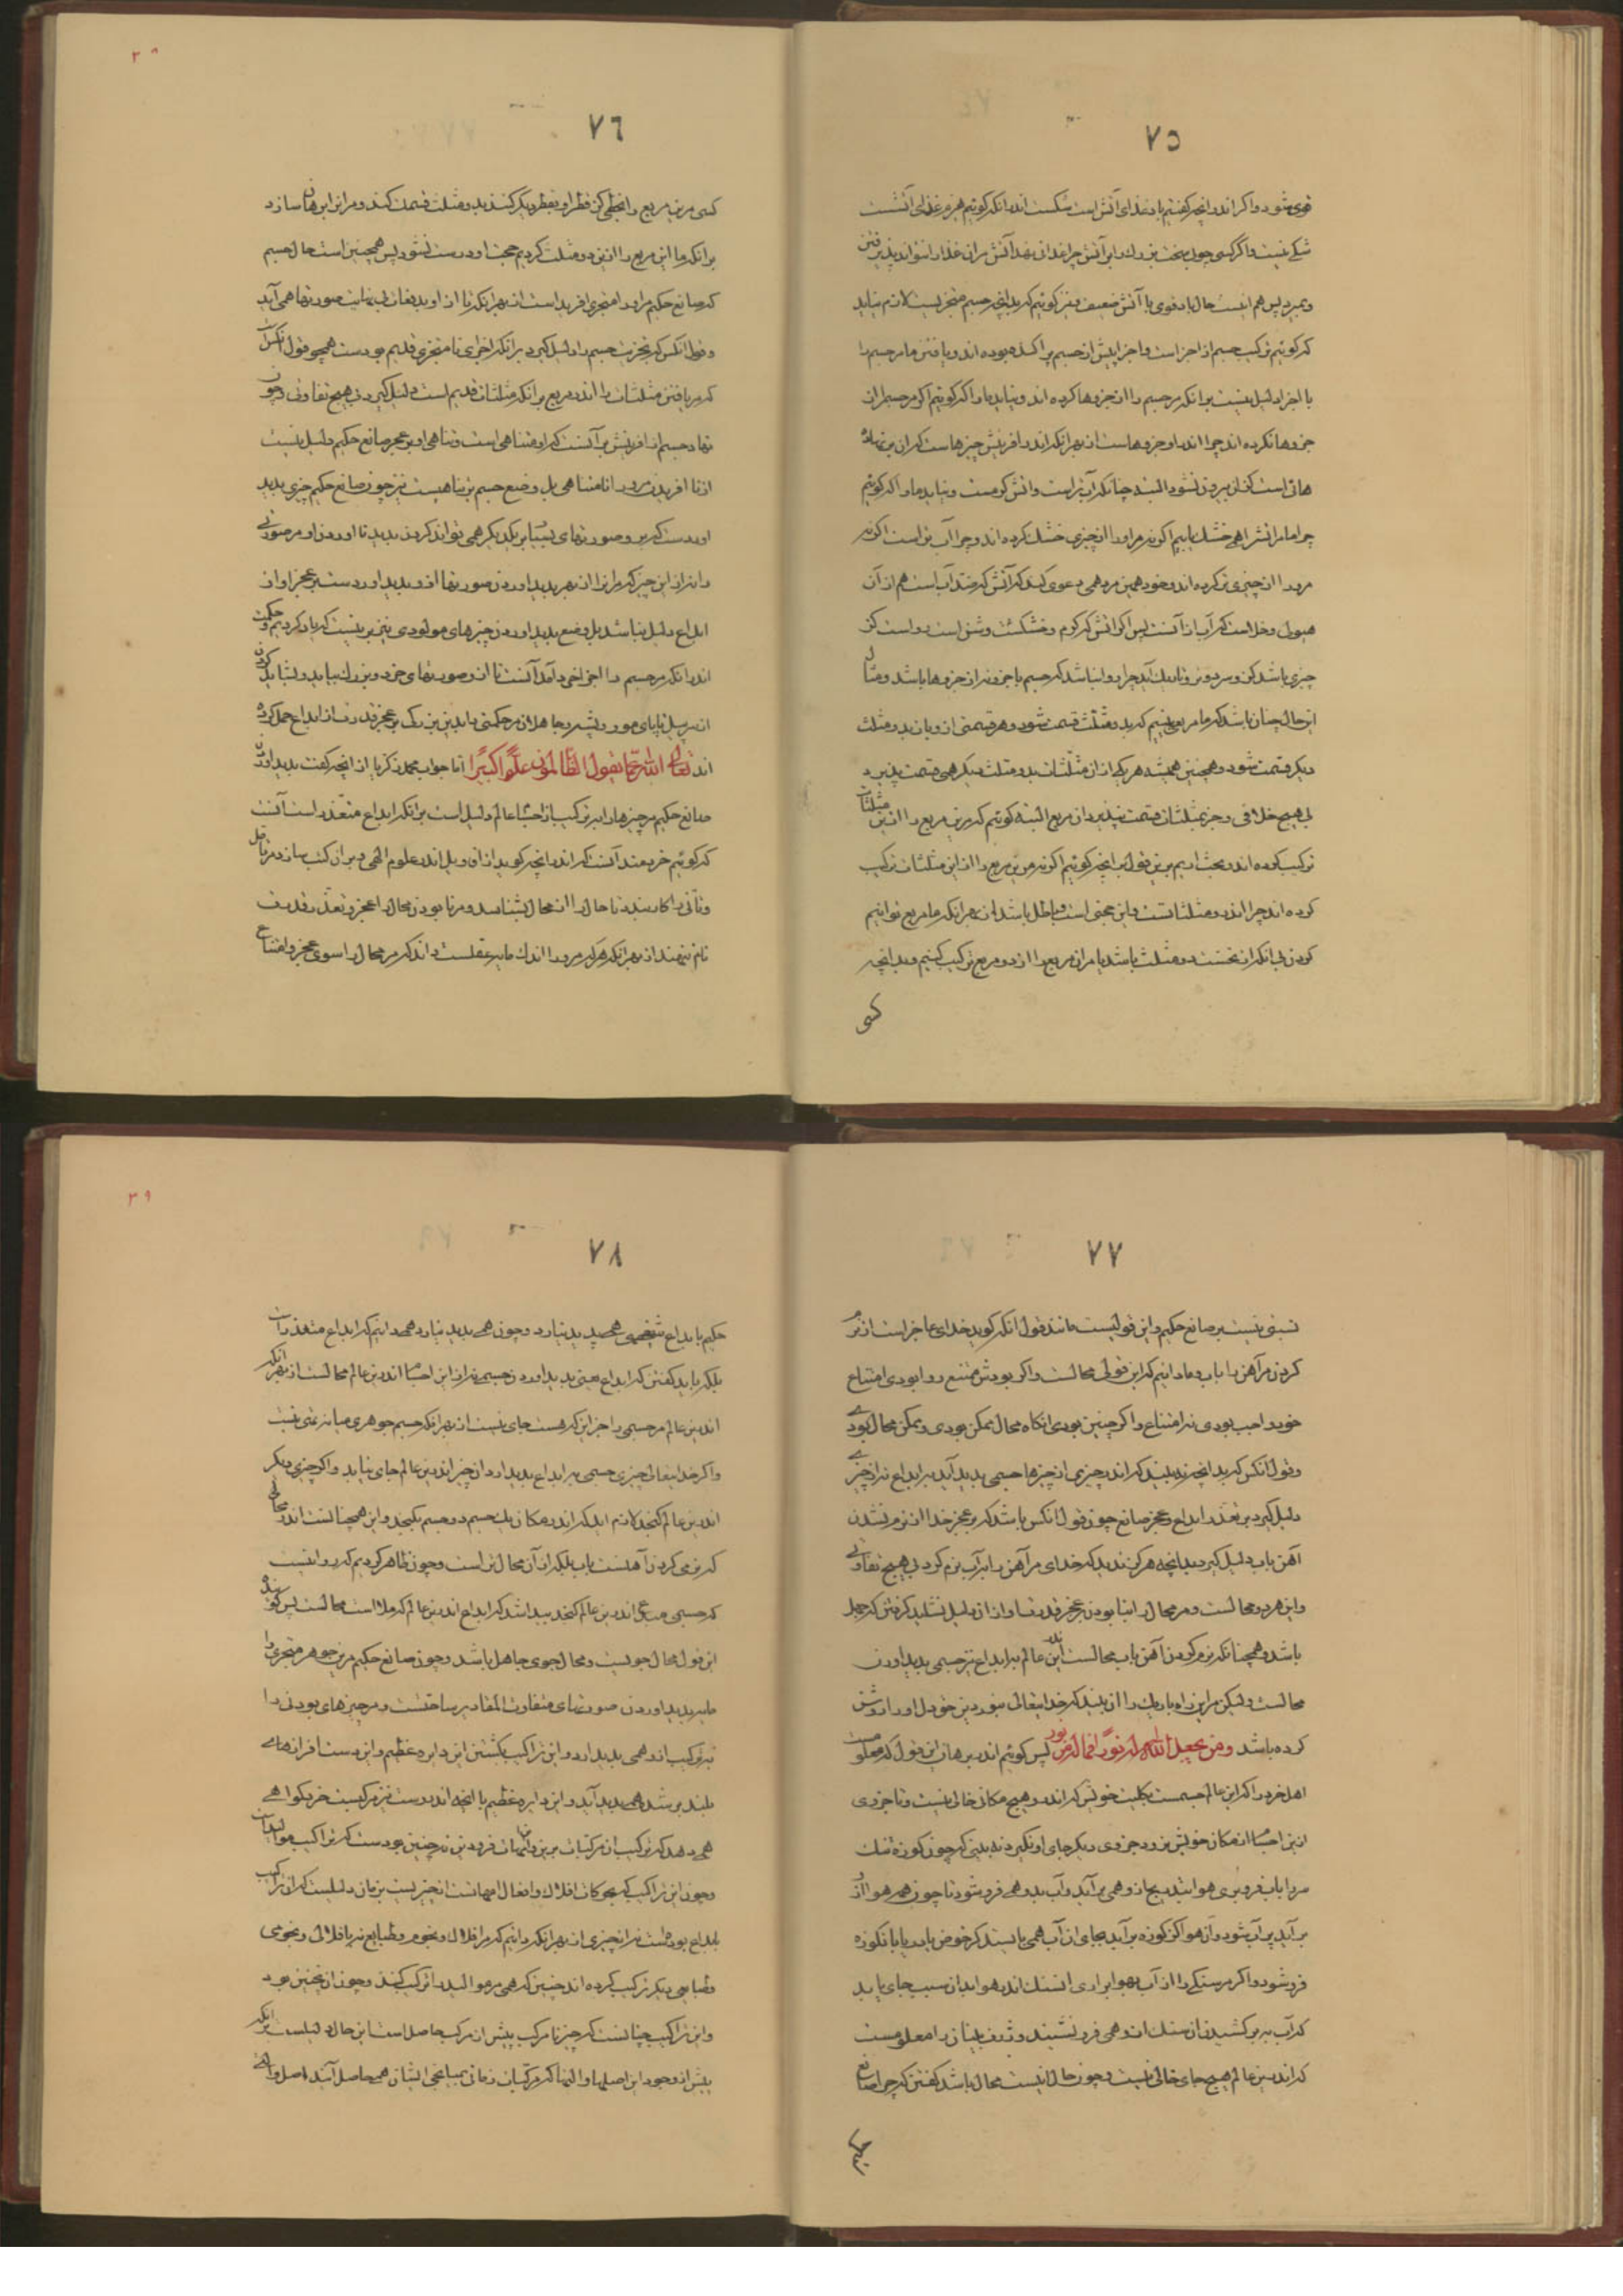 ٧٥
قوی شود و اگر اندر آنچه گفتیم باد غذای آتش است شکست اندر آنکه گوئیم هیزم غذای آتشست
شکی نیست و اگر کسی چوبی سخت بزرگ را بر آتش چراغدانی نهد آتش مر آن غذا را نتواند پذیرفتن
و بمیرد پس هم اینست حال باد قوی با آتش ضعیف و نیز گوئیم که بدانچه جسم متجزیست لازم نیاید
که گوئیم ترکیب جسم از اجزا است و اجزا پیش از جسم پراکنده بوده اند و یافتن ما مر جسم را
با اجزا دلیل نیست بر آنکه مر جسم را از جزوها کرده اند و نیاید ما را که گوئیم اگر مر جسم را از
جزوها نکرده اند چرا اندر او جزوهاست از بهر آنکه اندر آفرینش چیزهاست که آن بر نهاد
هائی است کز آن بیرون نشود البته چنانکه آب تر است و آتش گرمست و نیاید ما را که گوئیم
چرا ما مر آتش را همی خشک یابیم اگر نه مر او را از چیزی خشک کرده اند و چرا آب تر است اگر نه
مرو را از چیزی تر کرده اند و خود همین مرد همی دعوی کند که آتش که ضد آب است هم از آن
هیولی و خلا است که آب از آنست پس اگر آتش که گرم و خشکست و
چیزی باشد کز و سرد و تر و تاریک آید چرا روا نباشد که جسم با جزو نه از جزوها باشد و مثال
این حال چنان باشد که ما مربعی بینیم که بدو مثلث قسمت شود و هر قسمتی از و باز بدو مثلث
دیگر قسمت شود و همچنین همیشه هر یکی از آن مثلثات بدو مثلث دیگر همی قسمت پذیرد
بی هیچ خلافی و جز بمثلثات قسمت نپذیرد آن مربع البته گوئیم که مر این مربع را از این مثلثات
ترکیب کرده اند و بحث آریم بر این قول بر آنچه گوئیم اگر نه مر این مربع را از این مثلثات ترکیب
کرده اند چرا اندر و مثلثاتست و این حجتی است و باطل باشد از بهر آنکه ما مربع توانیم
کردن بی آنکه از نخست دو مثلث باشد یا مر آن مربع را از دو مربع ترکیب کنیم و بدانچه
کسی
٧٦
کسی مر این مربع را بخطی کز قطر او بقطر دیگر کشد بدو مثلث قسمت کند و مر این را برهان سازد
بر آنکه ما این مربع را از این دو مثلث کردیم حجت او درست نشود پس همچنین است حال جسم
که صانع حکیم مر او را متجزی آفریده است از بهر آنکه تا از او بدفعات بی نهایت صورتها همی آید
و قول آنکس که تجزیت جسم را دلیل گیرد بر آنکه اجزای نامتجزی قدیم بودست همچو قول آنکس است
که مر یافتن مثلثات را اندر مربع بر آنکه مثلثات قدیم است دلیل گیرد بی هیچ تفاوتی و چون
نهاد جسم از آفرینش بر آنست که او متناهی است و تناهی او بر عجز صانع حکیم دلیل نیست
از نا آفریدن مرورا نامتناهی بل وضع جسم بر تناهیست نیز چون صانع حکیم چیزی پدید
آوردست که
را نه از این چیز که مر آنرا از بهر پدید آوردن صورتها از و پدید آوردست بر عجز او از
ابداع دلیل نباشد بل وضع پدید آوردن چیزهای مولودی بر اینست که یاد کردیم و حکمت
اندر آنکه مر جسم را اجزا اجزا در آمد آنست تا از و صورتهای خرد و بزرگ بیاید و نشاید کردن
از سر پیل تا پای مور و پشه و جاهلان مر حکمتی را بدین بزرگی بر عجز قدرت از ابداع حمل کرده
اند تعالی الله عما یقول الظالمون علوا کبیرا اما جواب محمد زکریا از آنچه گفت پدید آوردن
صانع حکیم مر چیزها را بترکیب از اجسام عالم دلیل است بر آنکه ابداع متعذر است آنست
که گوئیم خردمند آنست که اندر آنچه گوید
و تأنی را کار بندد تا حال را از محال بشناسد و مر نابودن محال را عجز و تعذر قدرت
نام ننهد از بهر آنکه هر که مرورا اندک مایه عقلست داند که مر محال را سوی عجز و امتناع
٧٧
نسبتی نیست بر صانع حکیم و این قولیست مانند قول آنکه گوید خدای عاجز است از تر
کردن مر آهن را بآب و ما دانیم که این قولی محالست و اگر بودش ممتنع روا بودی امتناع
خود واجب بودی نه امتناع و اگر چنین بودی آنگاه محال ممکن بودی و ممکن محال بودی
و قول آنکس که بدانچه نه بیند که اندر چیزی از چیزها جسمی پدید آید بر ابداع نه از چیزی
دلیل گیرد بر تعذر ابداع و عجز صانع چون قول آنکس باشد که بر عجز خدا از نرم شدن
آهن بآب دلیل گیرد بدانچه هرگز ندید که خدای مر آهن را بر آب نرم کرد بی هیچ تفاوتی
و این هر دو محالست و مر محال را نابودن بر عجز قدرت
باشد و همچنانکه نرم کردن آهن بآب محالست اندر این عالم بر ابداع نیز جسمی پدید آوردن
محالست ولیکن مر این راه باریک را آن بیند که خدایتعالی بنور دین خود دل او را روشن
کرده باشد و من لم یجعل الله له نورا فما له من نور پس گوئیم اندر برهان این قول که معلومست
اهل خرد را که این عالم جسمست بکلیت خویش که اندر و هیچ مکان خالی نیست و تا جزوی
از این اجسام از مکان خویش نرود جزوی دیگر جای او نگیرد نه بینی که چون کوزه تنگ
سر را بآب فرو بری هوا بتدریج از و همی برآید و آب بدو همی فرو شود تا چون همه هوا از و
برآید پر آب شود و آن هوا کز کوزه برآید بجای آن آب همی بایستد کز حوض یا دریا بآن کوزه
فرو شود و اگر مر سنگی را از آب بهوا برآری
که آب ببر کشیدن آن سنگ از و همی فرو نشیند و ژرف بینان را معلومست
که اندر این عالم هیچ جای خالی نیست و چون حال اینست محال باشد گفتن که چرا صانع
حکیم
٧٨
حکیم بابداع شخصی همی پدید نیارد و چون همی پدید نیارد همی دانیم که ابداع متعذر است
بلکه باید گفتن که ابداع یعنی پدید آوردن جسمی نه از این اجسام اندرین عالم محالست از بهر آنکه
اندر این عالم مر جسمی را جز این که هست جای نیست از بهر آنکه جسم جوهری میانه تهی نیست
و اگر خدایتعالی چیزی جسمی بابداع پدید آرد آن چیز اندر این عالم جای نیابد و اگر چیزی دیگر
اندر این عالم گنجد لازم آید که اندر مکان یک جسم دو جسم بگنجد و این همچنانست اندر محالی
که نرمی کردن آهنست بآب بلکه از آن محال تر است و چون ظاهر کردیم که روا نیست
که جسمی مبدع اندر این عالم گنجد پیدا شد که ابداع اندر این عالم که ملا است محالست پس گوینده
این قول محال جویست و محال جوی جاهل باشد و چون صانع حکیم مر این جوهر متجزی را
مایه پدید آوردن صورتهای متفاوت المقادیر ساختست و مر چیزهای بودنی را
بترکیب از و همی پدید آرد و این تراکیب بگشتن این دایره عظیم و این دست افزارهای
بلند بر شده همی پدید آید و این دایره عظیم با آنچه اندر وست نیز مرکبست خرد گواهی
همی دهد که
و چون این تراکیب که بحرکات افلاک و افعال
بابداع بودست نه از چیزی از بهر آنکه دانیم که مر افلاک و نجوم و طبایع نه بافلاک و نجومی
و طبایعی دیگر ترکیب کرده اند چنین که همی مر موالید را ترکیب کنند و چون از نخستین بود
و این تراکیب چنانست که چیز نامرکب پیش از مرکب حاصل است این حال دلیلست بر آنکه
پیش از وجود این اصلها و آلتها که مرکبات زمانی بمیانجی ایشان همی حاصل آیند اصل و آلتی
٣٩